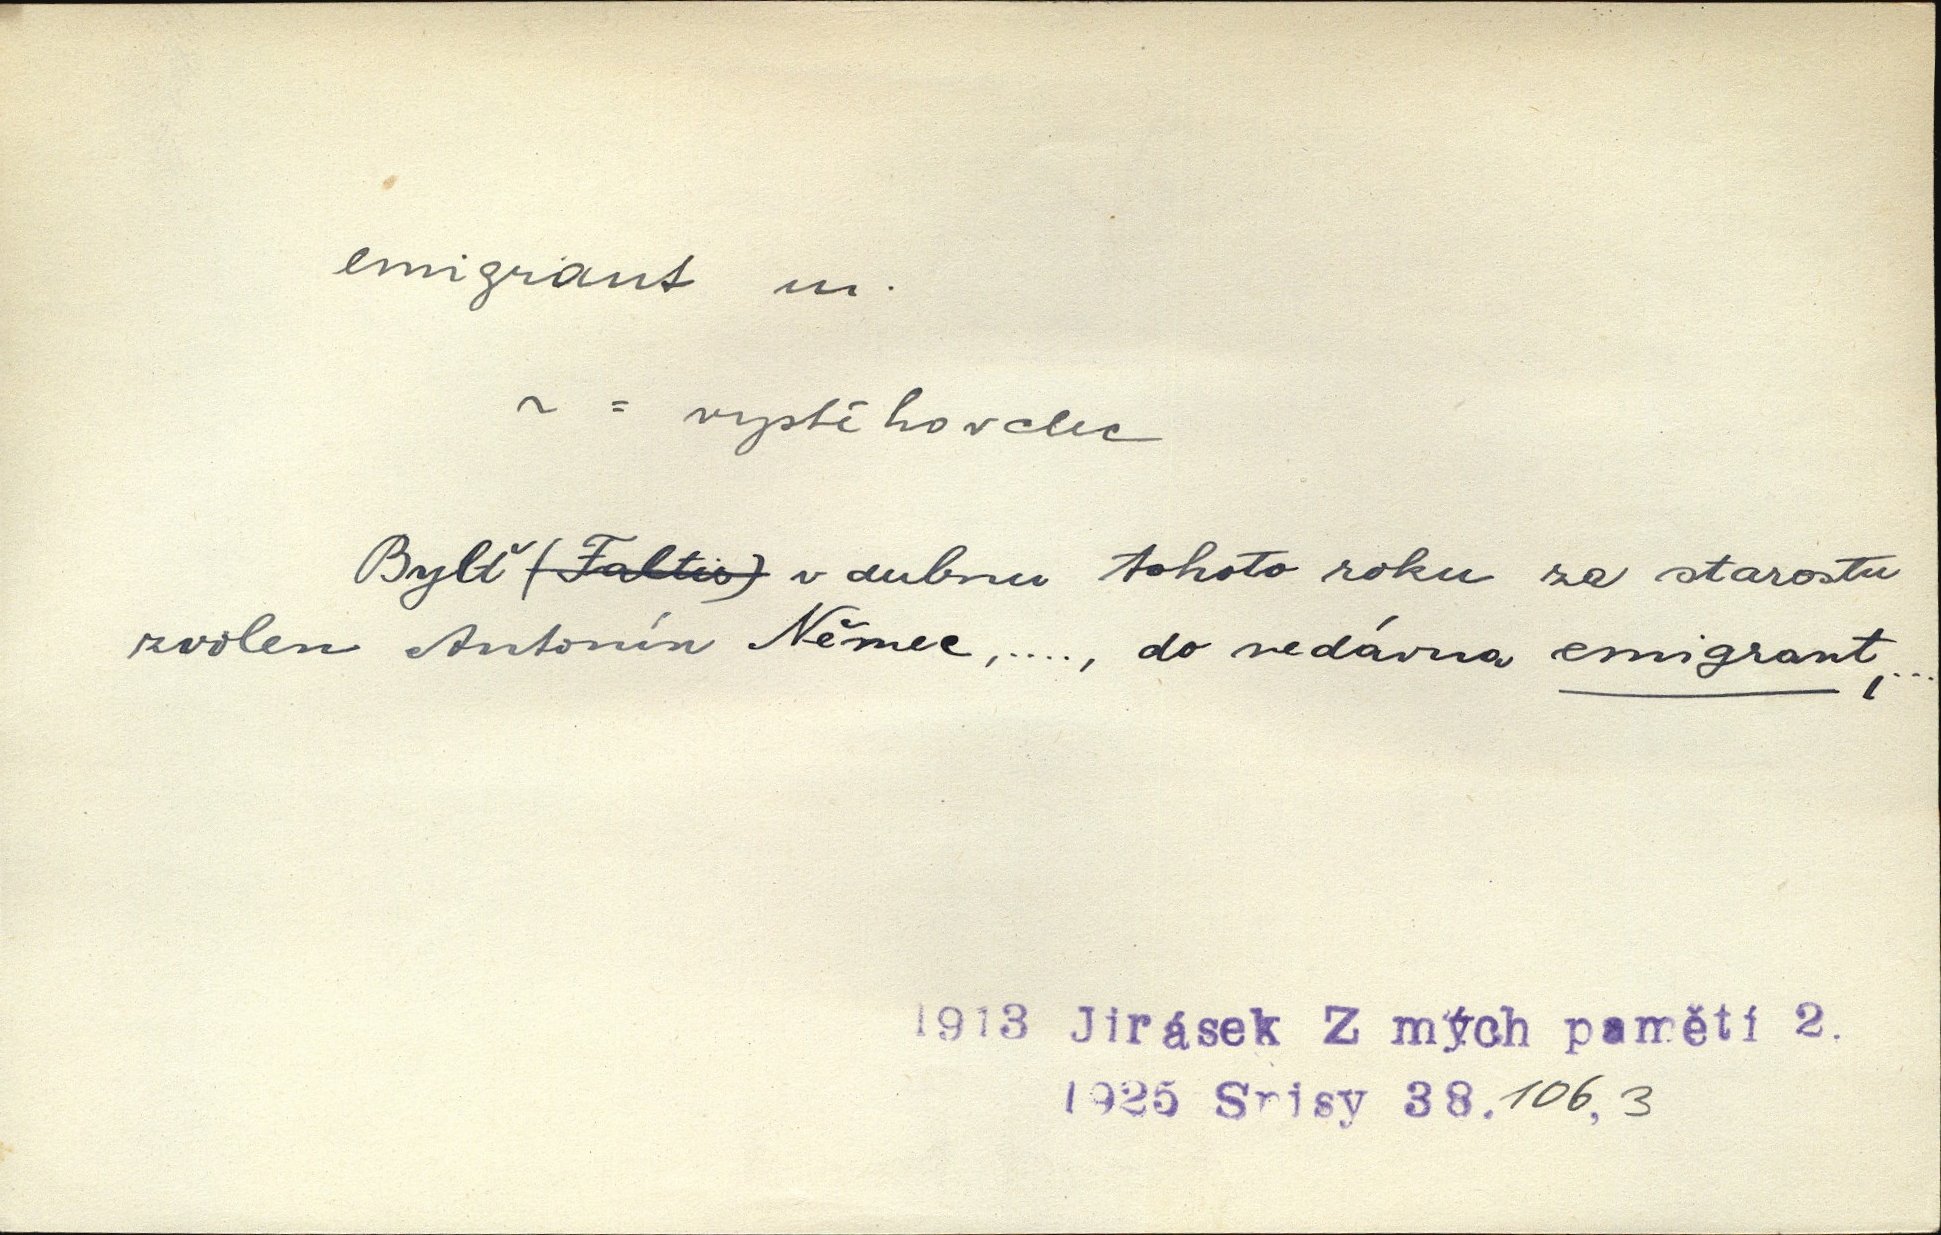 emigrant m.
~ = vystěhovalec
Bylť (Faltis) v dubnu tohoto roku za starostu
zvolen Antonín Němec, ...., do nedávna emigrant, ...
1913 Jirásek Z mých pamětí 2.
1925 Spisy 38. 106, 3